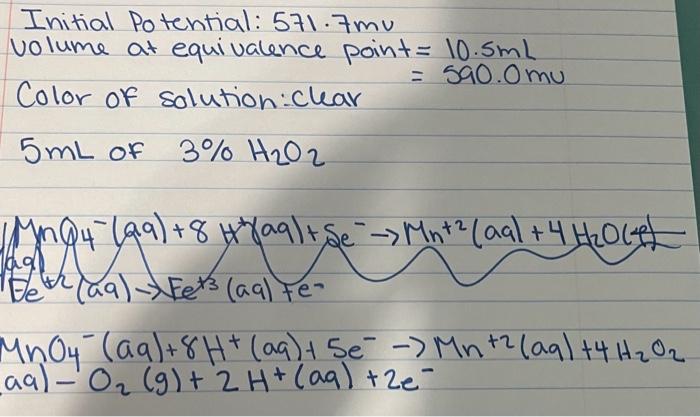 Initial Potential: 571.7mv
volume at equivalence point = 10.5mL
= 590.0mv
Color of solution: clear
5mL of 3% H2O2
MnO4⁻(aq) + 8 H⁺(aq) + 5e⁻ → Mn⁺²(aq) + 4 H2O
(aq)
Fe⁺²(aq) → Fe⁺³(aq) + e⁻
MnO4⁻(aq) + 8H⁺(aq) + 5e⁻ → Mn⁺²(aq) + 4 H2O2
aq) – O2(g) + 2 H⁺(aq) + 2e⁻